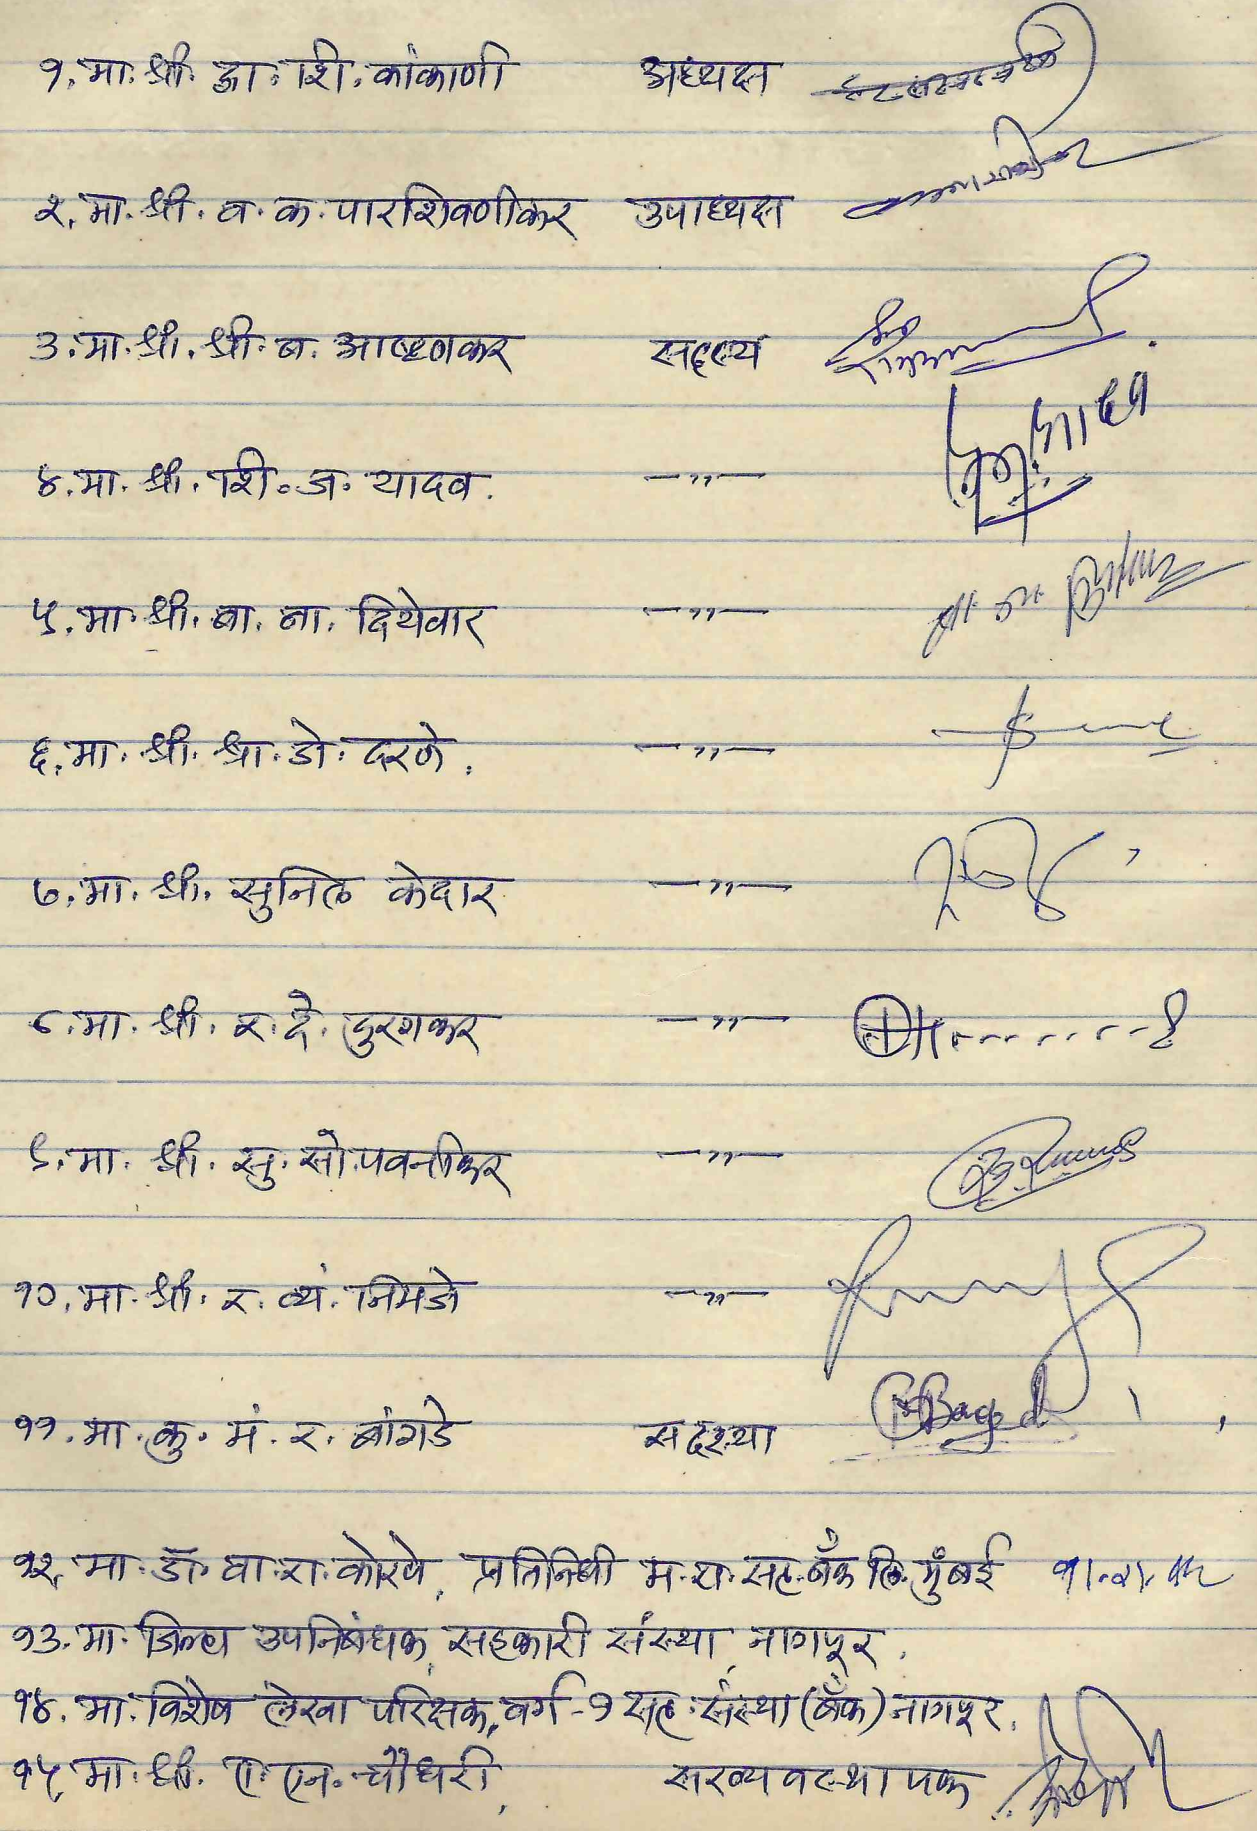 १. मा. श्री. झा. शि. कांकाणी अध्यक्ष
२. मा. श्री. व. क. पारशिवणीकर उपाध्यक्ष
३. मा. श्री. श्री. ब. आष्टणकर सदस्य
४. मा. श्री. शि. ज. यादव. —,,—
५. मा. श्री. बा. ना. दियेवार —,,—
६. मा. श्री. श्रा. डो. दरणे. —,,—
७. मा. श्री. सुनिल केदार —,,—
८. मा. श्री. र. दे. दुरगकर —,,—
९. मा. श्री. सु. सो. पवनीकर —,,—
१०. मा. श्री. र. व्यं. निमजे —,,—
११. मा. कु. मं. र. बांगडे सदस्या
१२. मा. डॉ. वा. रा. कोरपे, प्रतिनिधी म. रा. सह. बँक लि. मुंबई
१३. मा. जिल्हा उपनिबंधक, सहकारी संस्था, नागपूर.
१४. मा. विशेष लेखा परिक्षक, वर्ग-१ सह. संस्था (बँक) नागपूर.
१५. मा. श्री. ए. एन. चौधरी, सरव्यवस्थापक